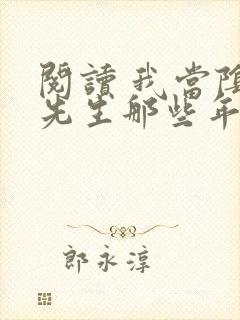 閱讀我當陰
先生那些年
郎永淳